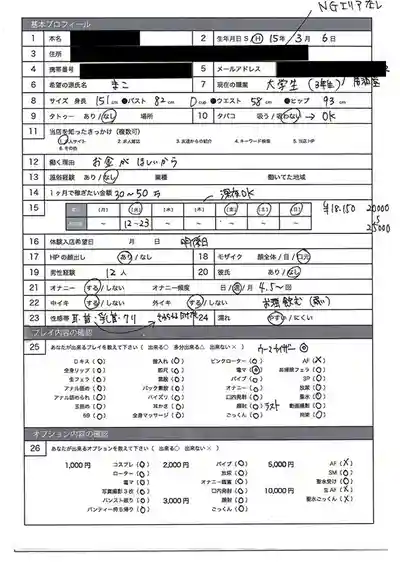 NGエリアなし
基本プロフィール
1 本名 2 生年月日 S・H 15年 3月 6日
3 住所
4 携帯番号 5 メールアドレス
6 希望の源氏名 まこ 7 現在の職業 大学生 (3年生) 居酒屋
8 サイズ 身長 151cm ●バスト 82cm Dcup ●ウエスト 58cm ●ヒップ 93cm
9 タトゥー あり/なし 場所 10 タバコ 吸う/吸わない → OK
11 当店を知ったきっかけ (複数可)
1.求人サイト 2.求人雑誌 3.友達からの紹介 4.キーワード検索 5.当店HP
6.その他
12 働く理由 お金がほしいから
13 風俗経験 あり/なし 業種 働いてた地域
14 1ヶ月で稼ぎたい金額 30〜50万 深夜OK
15 (月) (火) (水) (木) (金) (土) (日) ¥18,150 20000
12-23 〜25000
16 体験入店希望日 月 日 明後日
17 HPの顔出し あり/なし 18 モザイク 顔全体/目/口元
19 男性経験 12人 20 彼氏 あり/なし
21 オナニー する/しない オナニー頻度 日/週/月 4.5〜回
22 中イキ する/しない 外イキ する/しない お酒飲む(弱い)
23 性感帯 耳・首・乳首・クリ 24 濡れ やすい/にくい
プレイ内容の確認
25 あなたが出来るプレイを教えて下さい (出来る○ 多分出来る△ 出来ない×) ウーマナイザー
Dキス (○) 指入れ (○) ピンクローター (○) AF (×)
全身リップ (○) 即尺 (○) 電マ (○) お掃除フェラ (○)
生フェラ (○) 素股 (○) バイブ (○) 3P (○)
アナル舐め (○) パック素股 (○) オナニー (○) 放尿 (○)
アナル舐められ (○) パイズリ (○) 口内発射 (○) 聖水 (○)
玉舐め (○) 耳かき (○) 顔射 (○) ラスト 動画撮影 (○)
69 (○) 全身マッサージ (○) ごっくん (○) 拘束 (○)
オプション内容の確認
26 あなたが出来るオプションを教えて下さい (出来る○ 出来ない×)
1,000円 コスプレ (○) 2,000円 バイブ (○) 5,000円 AF (×)
ローター (○) 放尿 (○) SM (○)
電マ (○) オナニー鑑賞 (○) 聖水受け (○)
写真撮影3枚 (○) 口内発射 (○) 10,000円 生AF (×)
パンスト破り (○) 3,000円 顔射 (○) 聖水ごっくん (×)
パンティー持ち帰り (○) ごっくん (○)